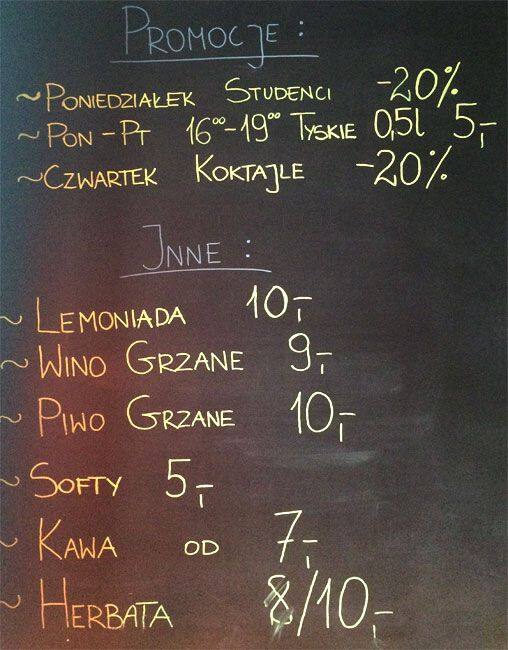 PROMOCJE :
~ PONIEDZIAŁEK STUDENCI -20%
~ PON - PT 16⁰⁰-19⁰⁰ TYSKIE 0,5l 5,-
~ CZWARTEK KOKTAJLE -20%
INNE :
~ LEMONIADA 10,-
~ WINO GRZANE 9,-
~ PIWO GRZANE 10,-
~ SOFTY 5,-
~ KAWA OD 7,-
~ HERBATA 8/10,-